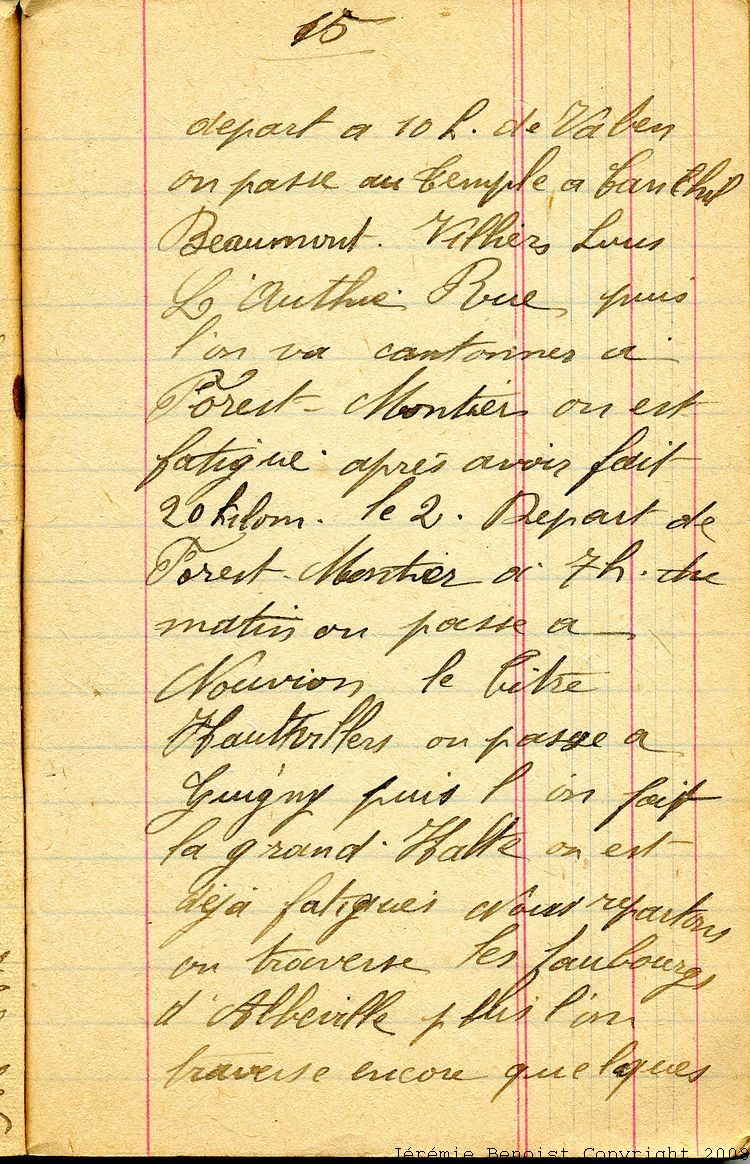 15
depart a 10 h. de Vaben
on passe au temple a
Beaumont. Villiers Sous
L'Authie. Rue, puis
l'on va cantonner a
Forest-Montiers on est
fatigué. après avoir fait
20 kilom. le 2. Depart de
Forest-Montier a 7h. du
matin on passe a
Nouvion le titre
Hautvillers on passe a
Guigny puis l'on fait
la grand. Halte on est
déjà fatigués Nous repartons
on traverse les faubourgs
d'Abbeville puis l'on
traverse encore quelques
Jérémie Benoist Copyright